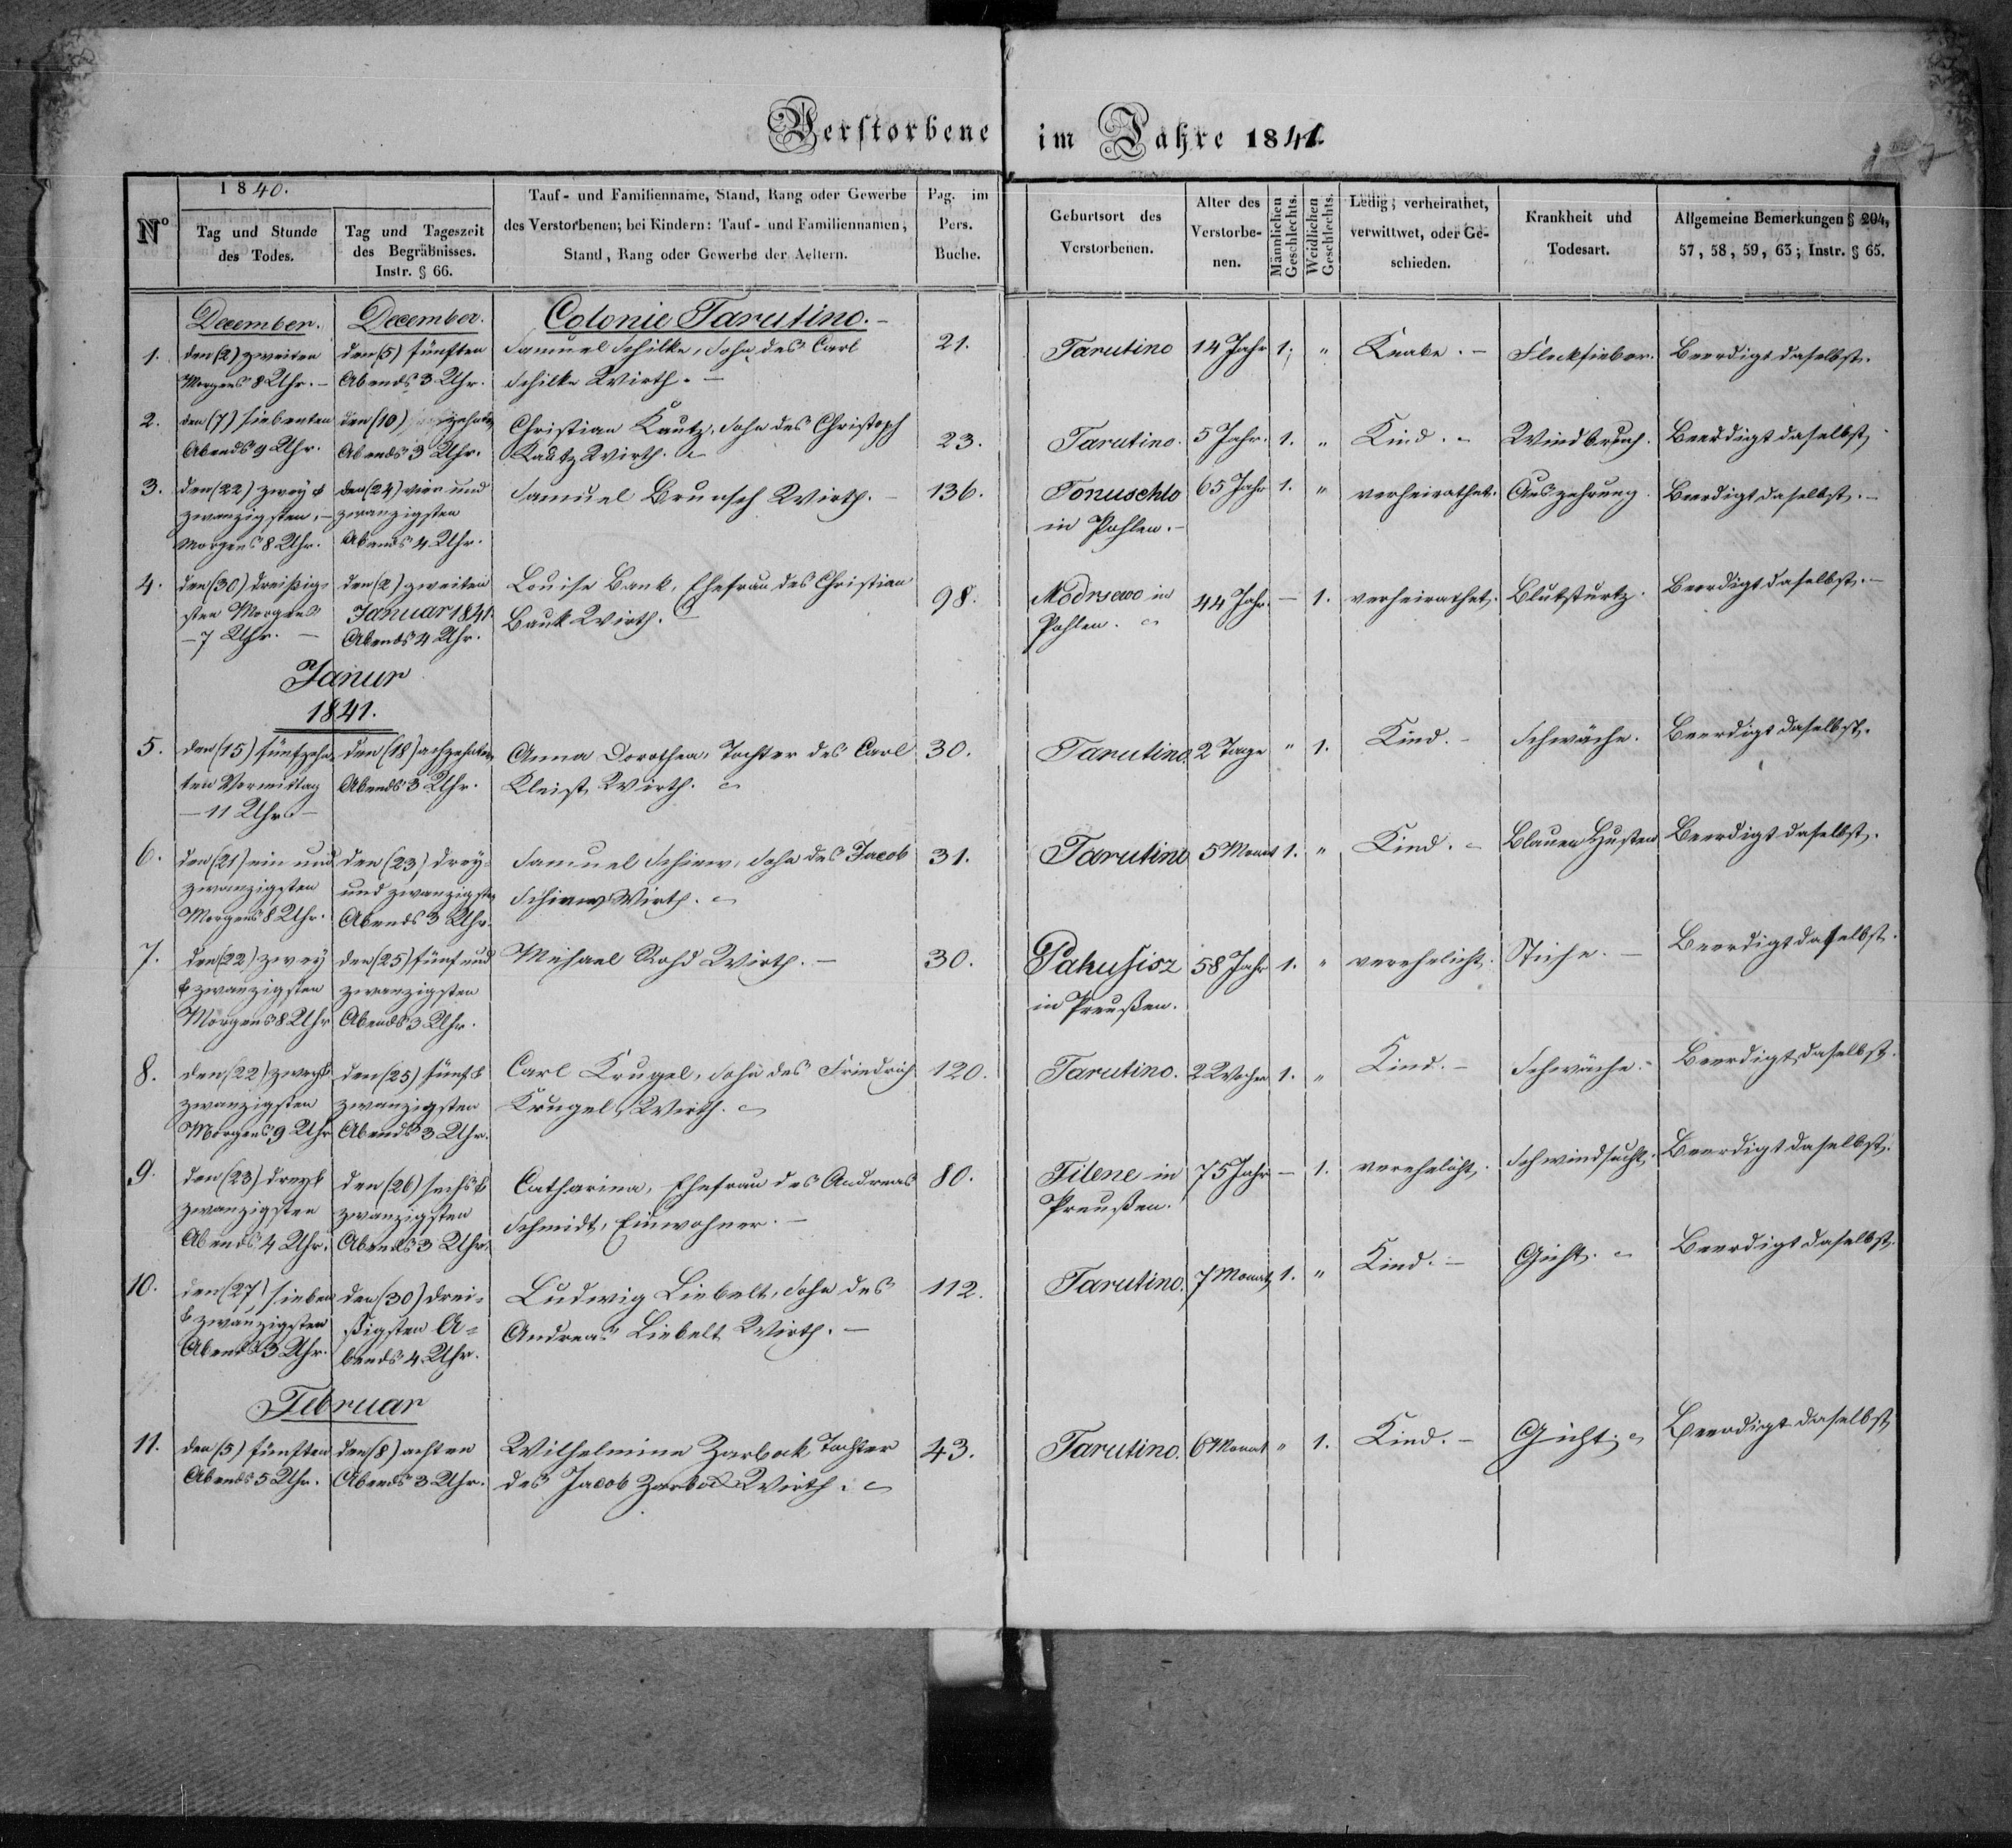 Verstorbene im Jahre 1841.
1840.
Nº
Tag und Stunde
des Todes.
Tag und Tageszeit
des Begräbnisses.
Instr. § 66.
Tauf- und Familienname, Stand, Rang oder Gewerbe
des Verstorbenen; bei Kindern: Tauf- und Familiennamen,
Stand, Rang oder Gewerbe der Aeltern.
Pag. im
Pers.
Buche.
Geburtsort des
Verstorbenen.
Alter des
Verstorbe-
nen.
Männlichen
Geschlechts.
Weiblichen
Geschlechts.
Ledig; verheirathet,
verwittwet, oder Ge-
schieden.
Krankheit und
Todesart.
Allgemeine Bemerkungen § 204,
57, 58, 59, 63; Instr. § 65.
December. December. Colonie Tarutino.-
1. den (2) zweiten den (5) fünften Samuel Schilke, Sohn des Carl 21. Tarutino 14 Jahr 1. " Knabe.- Fleckfieber. Beerdigt daselbst.
Morgens 8 Uhr.- Abends 3 Uhr. Schilke Wirth.-
2. den (7) siebenten den (10) zehnten Christian Kautz, Sohn des Christoph 23. Tarutino. 5 Jahr. 1. " Kind.- Windbruch. Beerdigt daselbst
Abends 9 Uhr. Abends 3 Uhr. Kautz Wirth.
3. den (22) zwey & den (24) vier und Samuel Brunsch Wirth.- 136. Tonuschlo 65 Jahr 1. " verheirathet. Auszehrung. Beerdigt daselbst.-
zwanzigsten,- zwanzigsten in Pohlen.-
Morgens 8 Uhr. Abends 4 Uhr.
4. den (30) dreißig- den (2) zweiten Louise Bauk, Ehefrau des Christian 98. Modrsewo in 44 Jahr. - 1. verheirathet. Blutsturtz. Beerdigt daselbst.-
sten Morgens Januar 1841. Bauk Wirth. Pohlen.
-7 Uhr.- Abends 4 Uhr.
Janur
1841.
5. den (15) fünfzehn- den (18) achzehnten Anna Dorothea, Tochter des Carl 30. Tarutino. 2 Tage " 1. Kind.- Schwäche. Beerdigt daselbst.
ten Vormittag Abends 3 Uhr. Kleist, Wirth.
-11 Uhr-
6. den (21) ein und den (23) drey- Samuel Schiewe, Sohn des Jacob 31. Tarutino 5 Monat 1. " Kind.- Blauen Husten Beerdigt daselbst.
zwanzigsten und zwanzigsten Schiewe Wirth.
Morgens 8 Uhr. Abends 3 Uhr.
7. den (22) zwey den (25) fünf und Michael Rohd Wirth.- 30. 58 Jahr 1. " verehelicht. Stiche.- Beerdigt daselbst.
& zwanzigsten zwanzigsten in Preußen.
Morgens 8 Uhr Abends 3 Uhr.
8. den (22) zwey & den (25) fünf & Carl Krugel, Sohn des Friedrich 120. Tarutino. 2 Wochen 1. " Kind.- Schwäche.- Beerdigt daselbst.
zwanzigsten zwanzigsten Krugel, Wirth.
Morgens 9 Uhr Abends 3 Uhr.
9. den (23) drey & den (26) sechs & Catharina, Ehefrau des Andreas 80. Filene in 75 Jahr - 1. verehelicht. Schwindsucht. Beerdigt daselbst.
zwanzigsten zwanzigsten Schmidt, Einwohner.- Preußen.
Abends 4 Uhr. Abends 3 Uhr.
10. den (27) sieben den (30) drei- Ludwig Liebelt, Sohn des 112. Tarutino. 7 Monat 1. " Kind.- Gicht.- Beerdigt daselbst.
& zwanzigsten ßigsten A- Andreas Liebelt Wirth.-
Abends 3 Uhr. bends 4 Uhr.
Februar
11. den (5) fünften den (8) achten Wilhelmine Zarbok Tochter 43. Tarutino. 6 Monat " 1. Kind.- Gicht.- Beerdigt daselbst
Abends 5 Uhr. Abends 3 Uhr. des Jacob Zarbok Wirth.